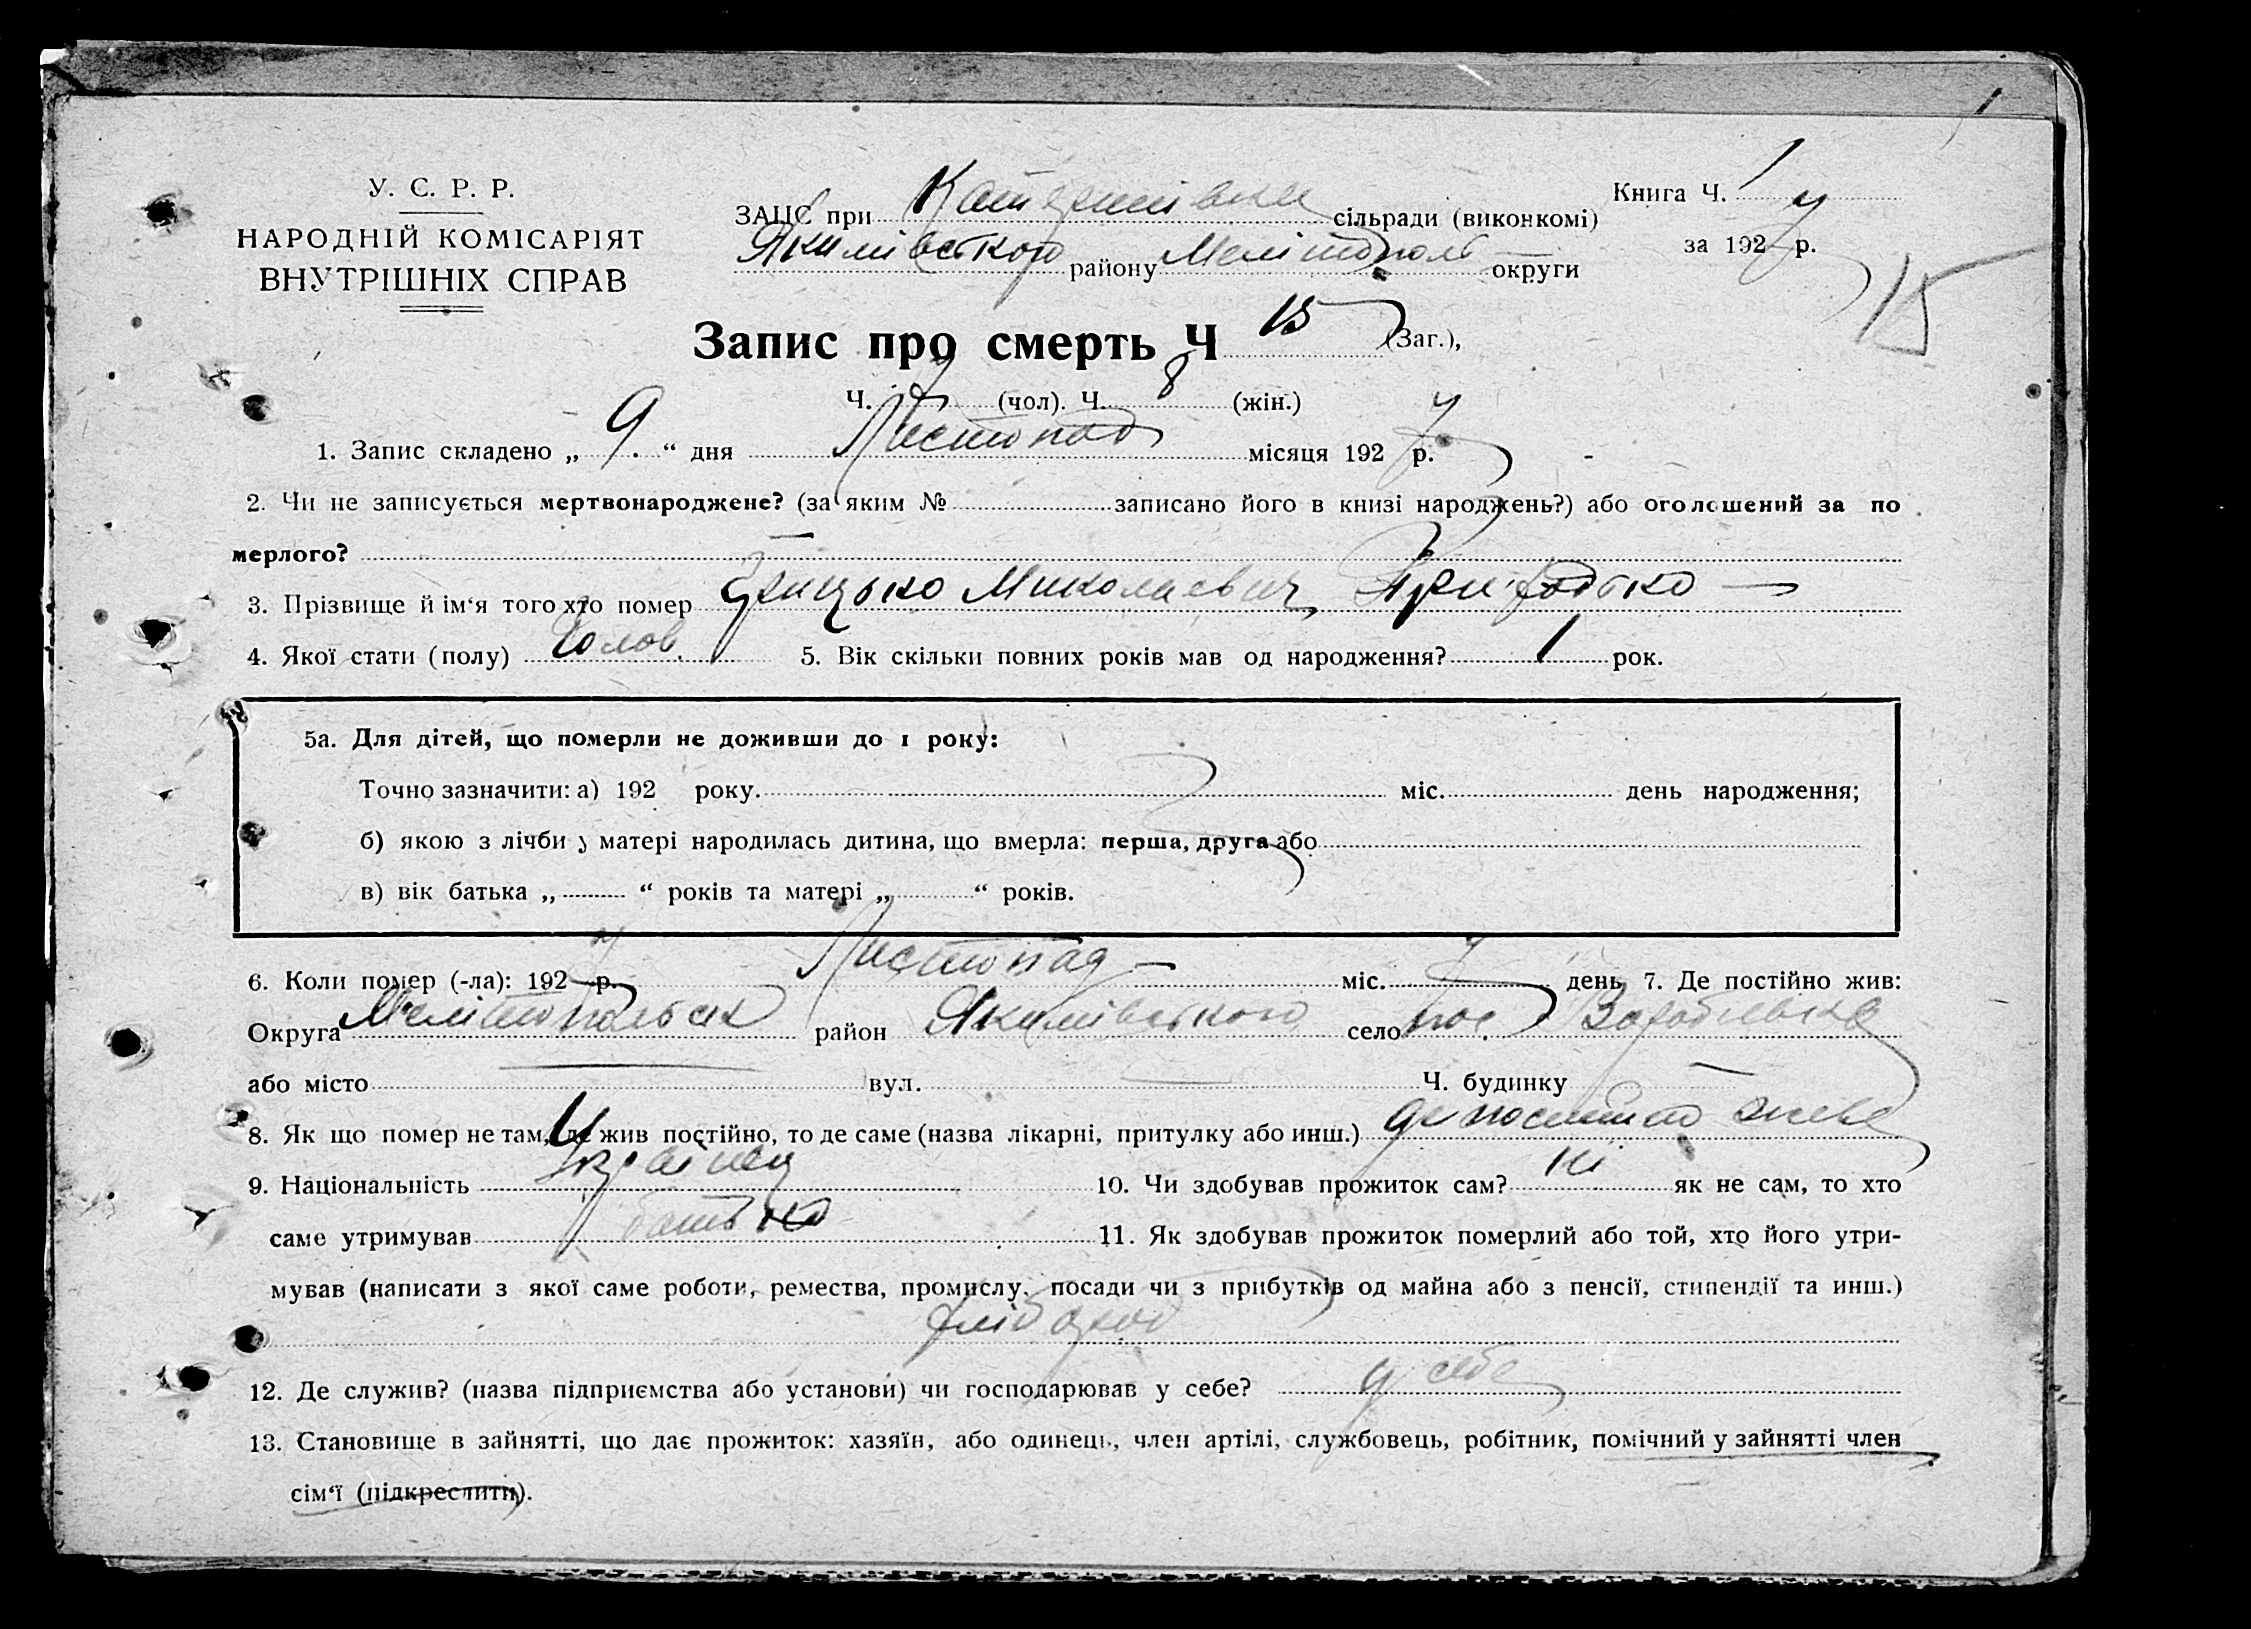 У. С. Р. Р.
НАРОДНІЙ КОМІСАРІЯТ
ВНУТРІШНІХ СПРАВ
ЗАЦС при Катеринівки сільради (виконкомі)
Якимівского району Мелітополь округи
Книга Ч. 1
за 1927 р.
15
Запис про смерть Ч 15 (Заг.),
Ч. 7 (чол). Ч. 8 (жін.)
1. Запис складено „ 9 “ дня Листопад місяця 1927 р.
2. Чи не записується мертвонароджене? (за яким № записано його в книзі народжень?) або оголошений за по
мерлого?
3. Прізвище й ім‘я того хто помер Грицько Миколаевич
4. Якої стати (полу) Чолов. 5. Вік скільки повних років мав од народження? 1 рок.
5а. Для дітей, що померли не доживши до 1 року:
Точно зазначити: а) 192 року. міс. день народження;
б) якою з лічби у матері народилась дитина, що вмерла: перша, друга або
в) вік батька „ “ років та матері „ “ років.
6. Коли помер (-ла): 1927 р. Листопад міс. 7 день 7. Де постійно жив:
Округа Мелітопольск район Якимівського село пос
або місто вул. Ч. будинку
8. Як що помер не там, де жив постійно, то де саме (назва лікарні, притулку або инш.) де постійно живе
9. Національність Українец 10. Чи здобував прожиток сам? ні як не сам, то хто
саме утримував батько 11. Як здобував прожиток померлий або той, хто його утри-
мував (написати з якої саме роботи, ремества, промислу, посади чи з прибутків од майна або з пенсії, стипендії та инш.)
хлібороб
12. Де служив? (назва підприємства або установи) чи господарював у себе? у себе
13. Становище в зайнятті, що дає прожиток: хазяїн, або одинець, член артілі, службовець, робітник, помічний у зайнятті член
сім‘ї (підкреслити).